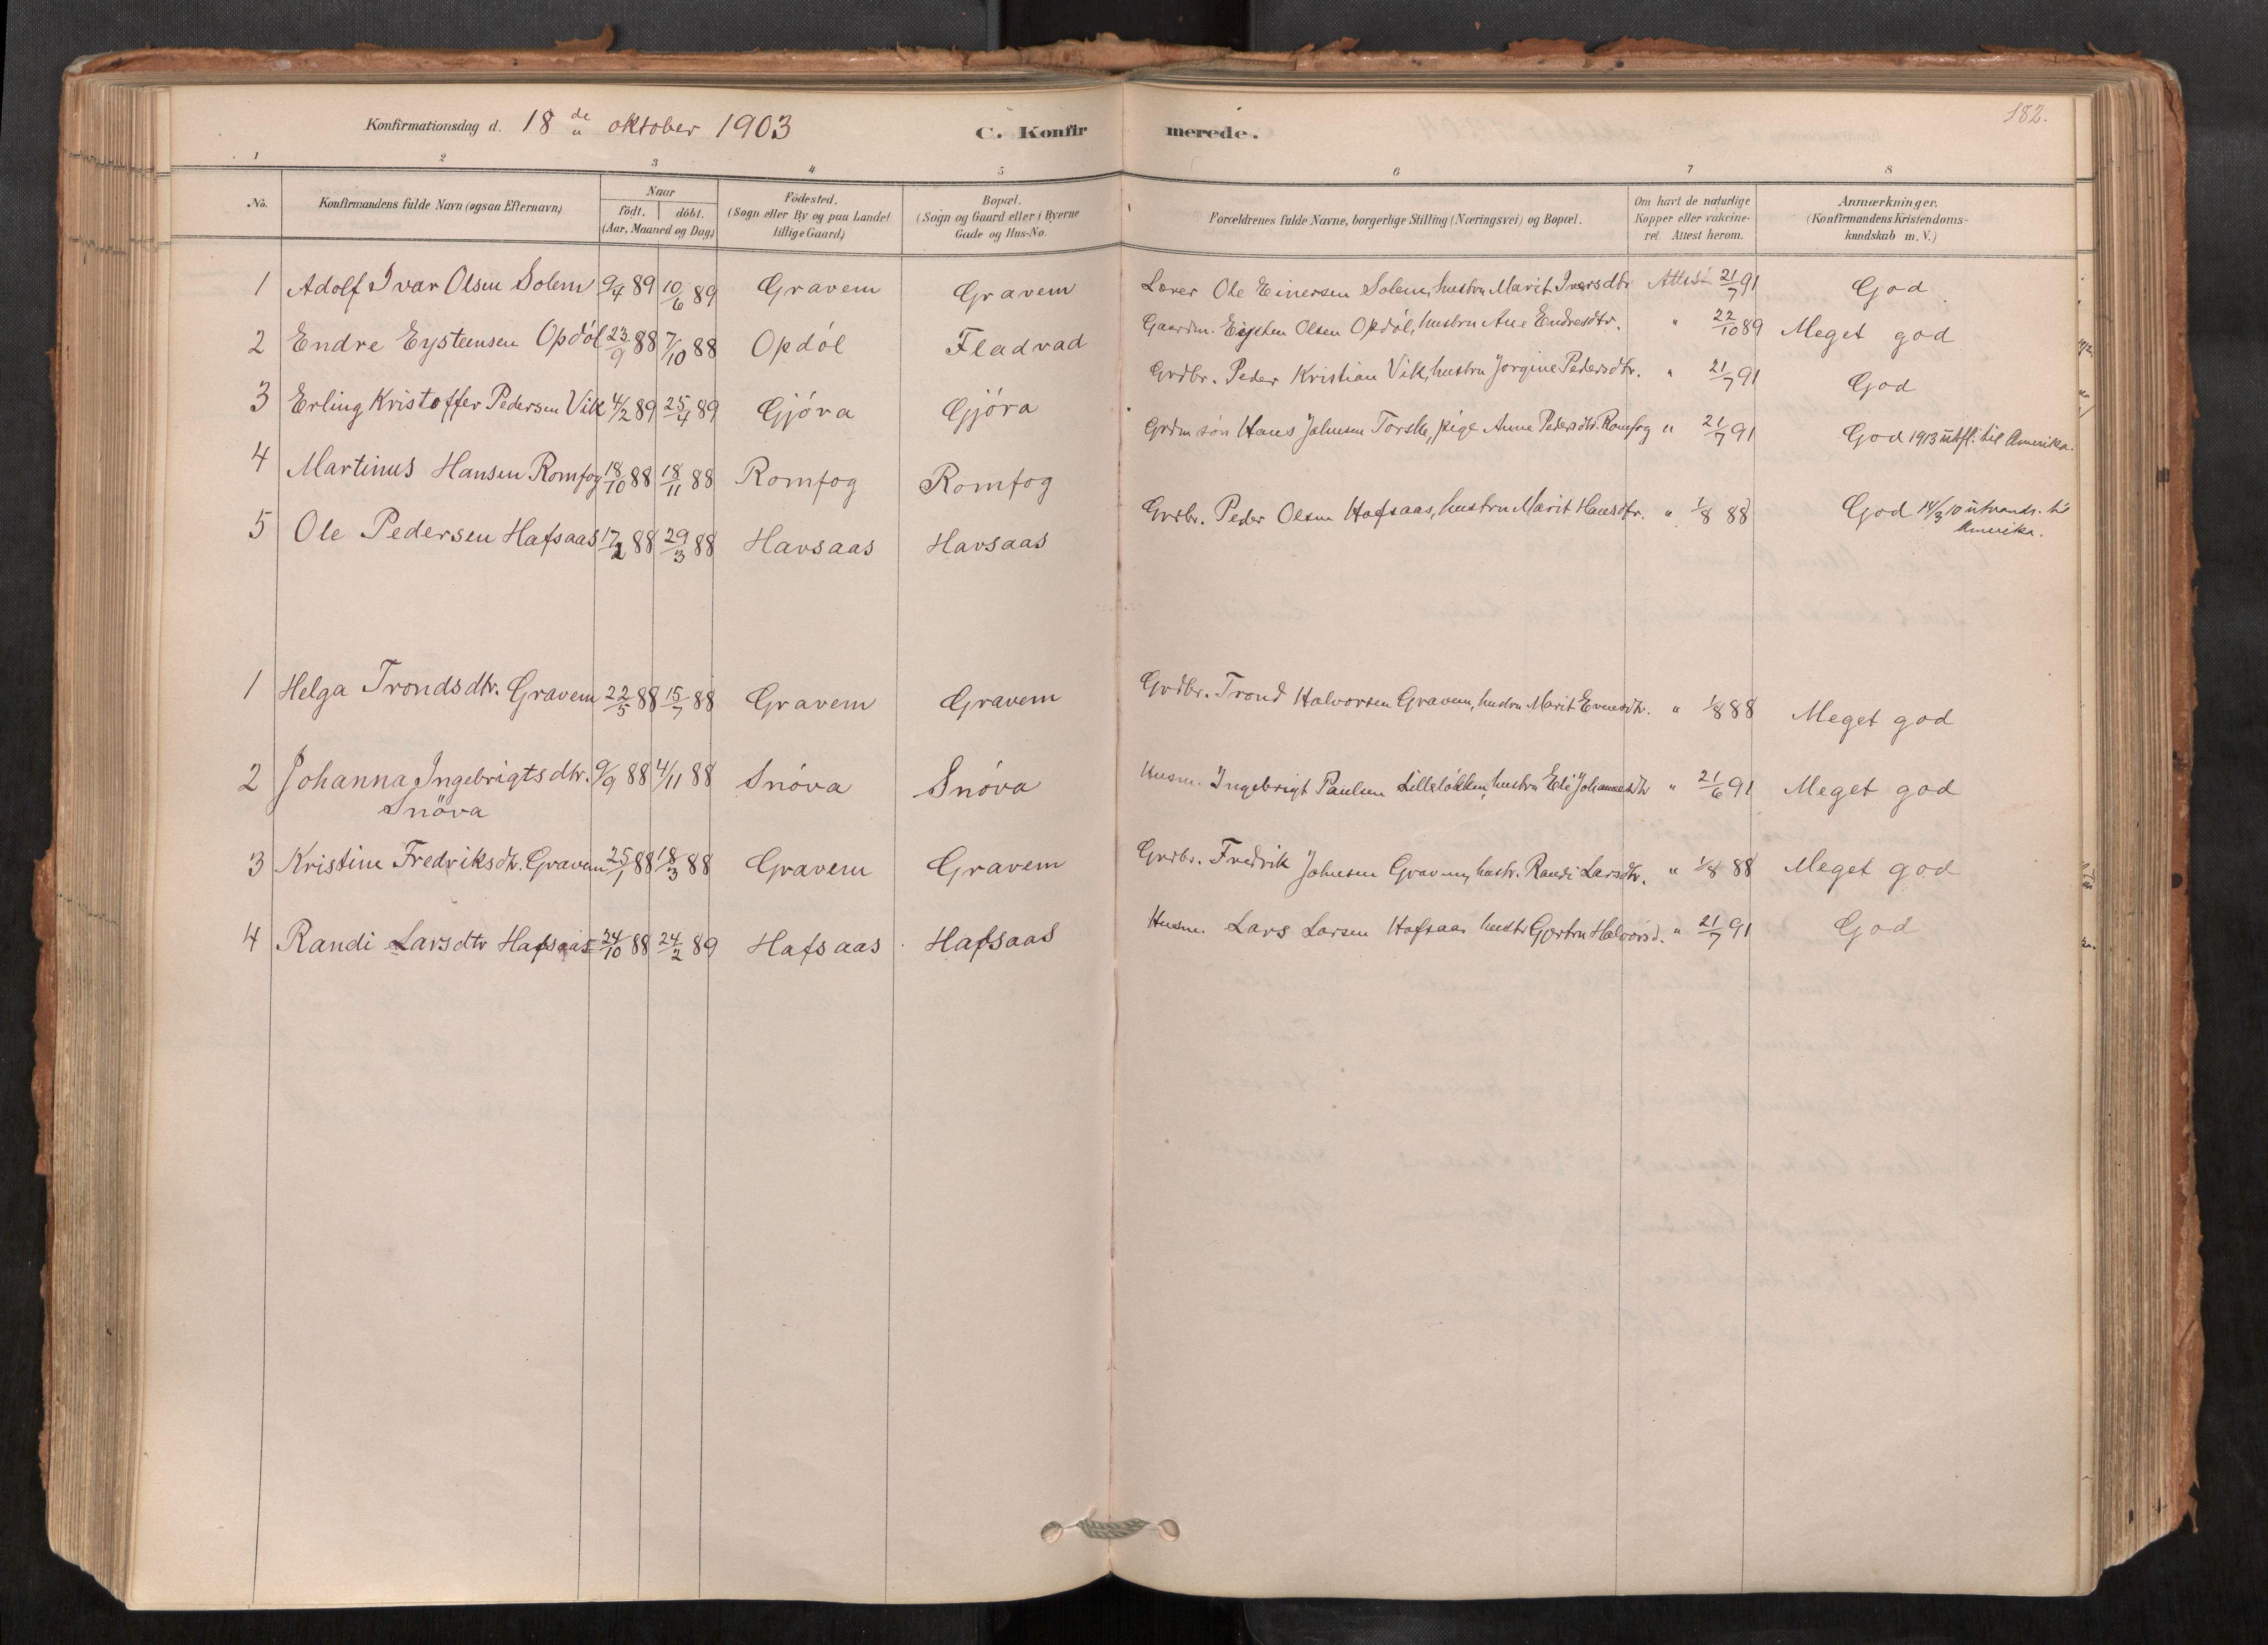 Konfirmationsdag d. 18 de oktober 1903
C. Konfirmerede.
182.
1 2 3 4 5 6 7 8
No.
Konfirmandens fulde Navn (ogsaa Efternavn)
Naar
födt. döbt.
(Aar, Maaned og Dag)
Födested.
(Sogn eller By og paa Landet
tillige Gaard)
Bopæl.
(Sogn og Gaard eller i Byerne
Gade og Hus-No.
Forældrenes fulde Navne, borgerlige Stilling (Næringsvei) og Bopæl.
Om havt de naturlige
Kopper eller vakcine-
ret. Attest herom.
Anmærkninger.
(Konfirmandens Kristendoms-
kundskab m. V.)
1 Adolf Ivar Olsen Solem 9/4 89 10/6 89 Gravem Gravem Lærer Ole Einersen Solem, hustru Marit Iversdtr Attest 21/7 91 God
2 Endre Eysteinsen Opdól 23/9 88 7/10 88 Opdól Fladvad Gaardm. Eysten Olsen Opdól, hustru Ane Endresdtr. " 22/10 89 Meget god
3 Erling Kristoffer Pedersen Vik 4/2 89 25/4 89 Gjóra Gjóra Grdbr. Peder Kristian Vik, hustru Jorgine Pedersdtr. " 21/7 91 God
4 Martinus Hansen Romfog 18/10 88 18/11 88 Romfog Romfog Grdm són Hans Johnsen Torske, pige Anne Pedersdtr. Romfog " 21/7 91 God 1913 utfl. til Amerika.
5 Ole Pedersen Hafsaas 17/2 88 29/3 88 Havsaas Havsaas Grdbr. Peder Olsen Hafsaas, hustru Marit Hansdtr. " 1/8 88 God 14/3 10 utvandr. til
Amerika.
1 Helga Trondsdtr. Gravem 22/5 88 15/7 88 Gravem Gravem Grdbr. Trond Halvorsen Gravem, hustru Marit Evensdtr. " 1/8 88 Meget god
2 Johanna Ingebrigtsdtr. 9/9 88 4/11 88 Snóva Snóva Husm. Ingebrigt Paulsen Lillelökken, hustru Eli Johannesdtr " 21/6 91 Meget god
Snöva
3 Kristine Fredriksdtr. Gravem 25/1 88 18/3 88 Gravem Gravem Grdbr. Fredrik Johnsen Gravem, hustr. Randi Larsdtr. " 1/8 88 Meget god
4 Randi Larsdtr Hafsaas 24/10 88 24/2 89 Hafsaas Hafsaas Husm. Lars Larsen Hafsaas hustr Gjertru Halvorsd. " 21/7 91 God